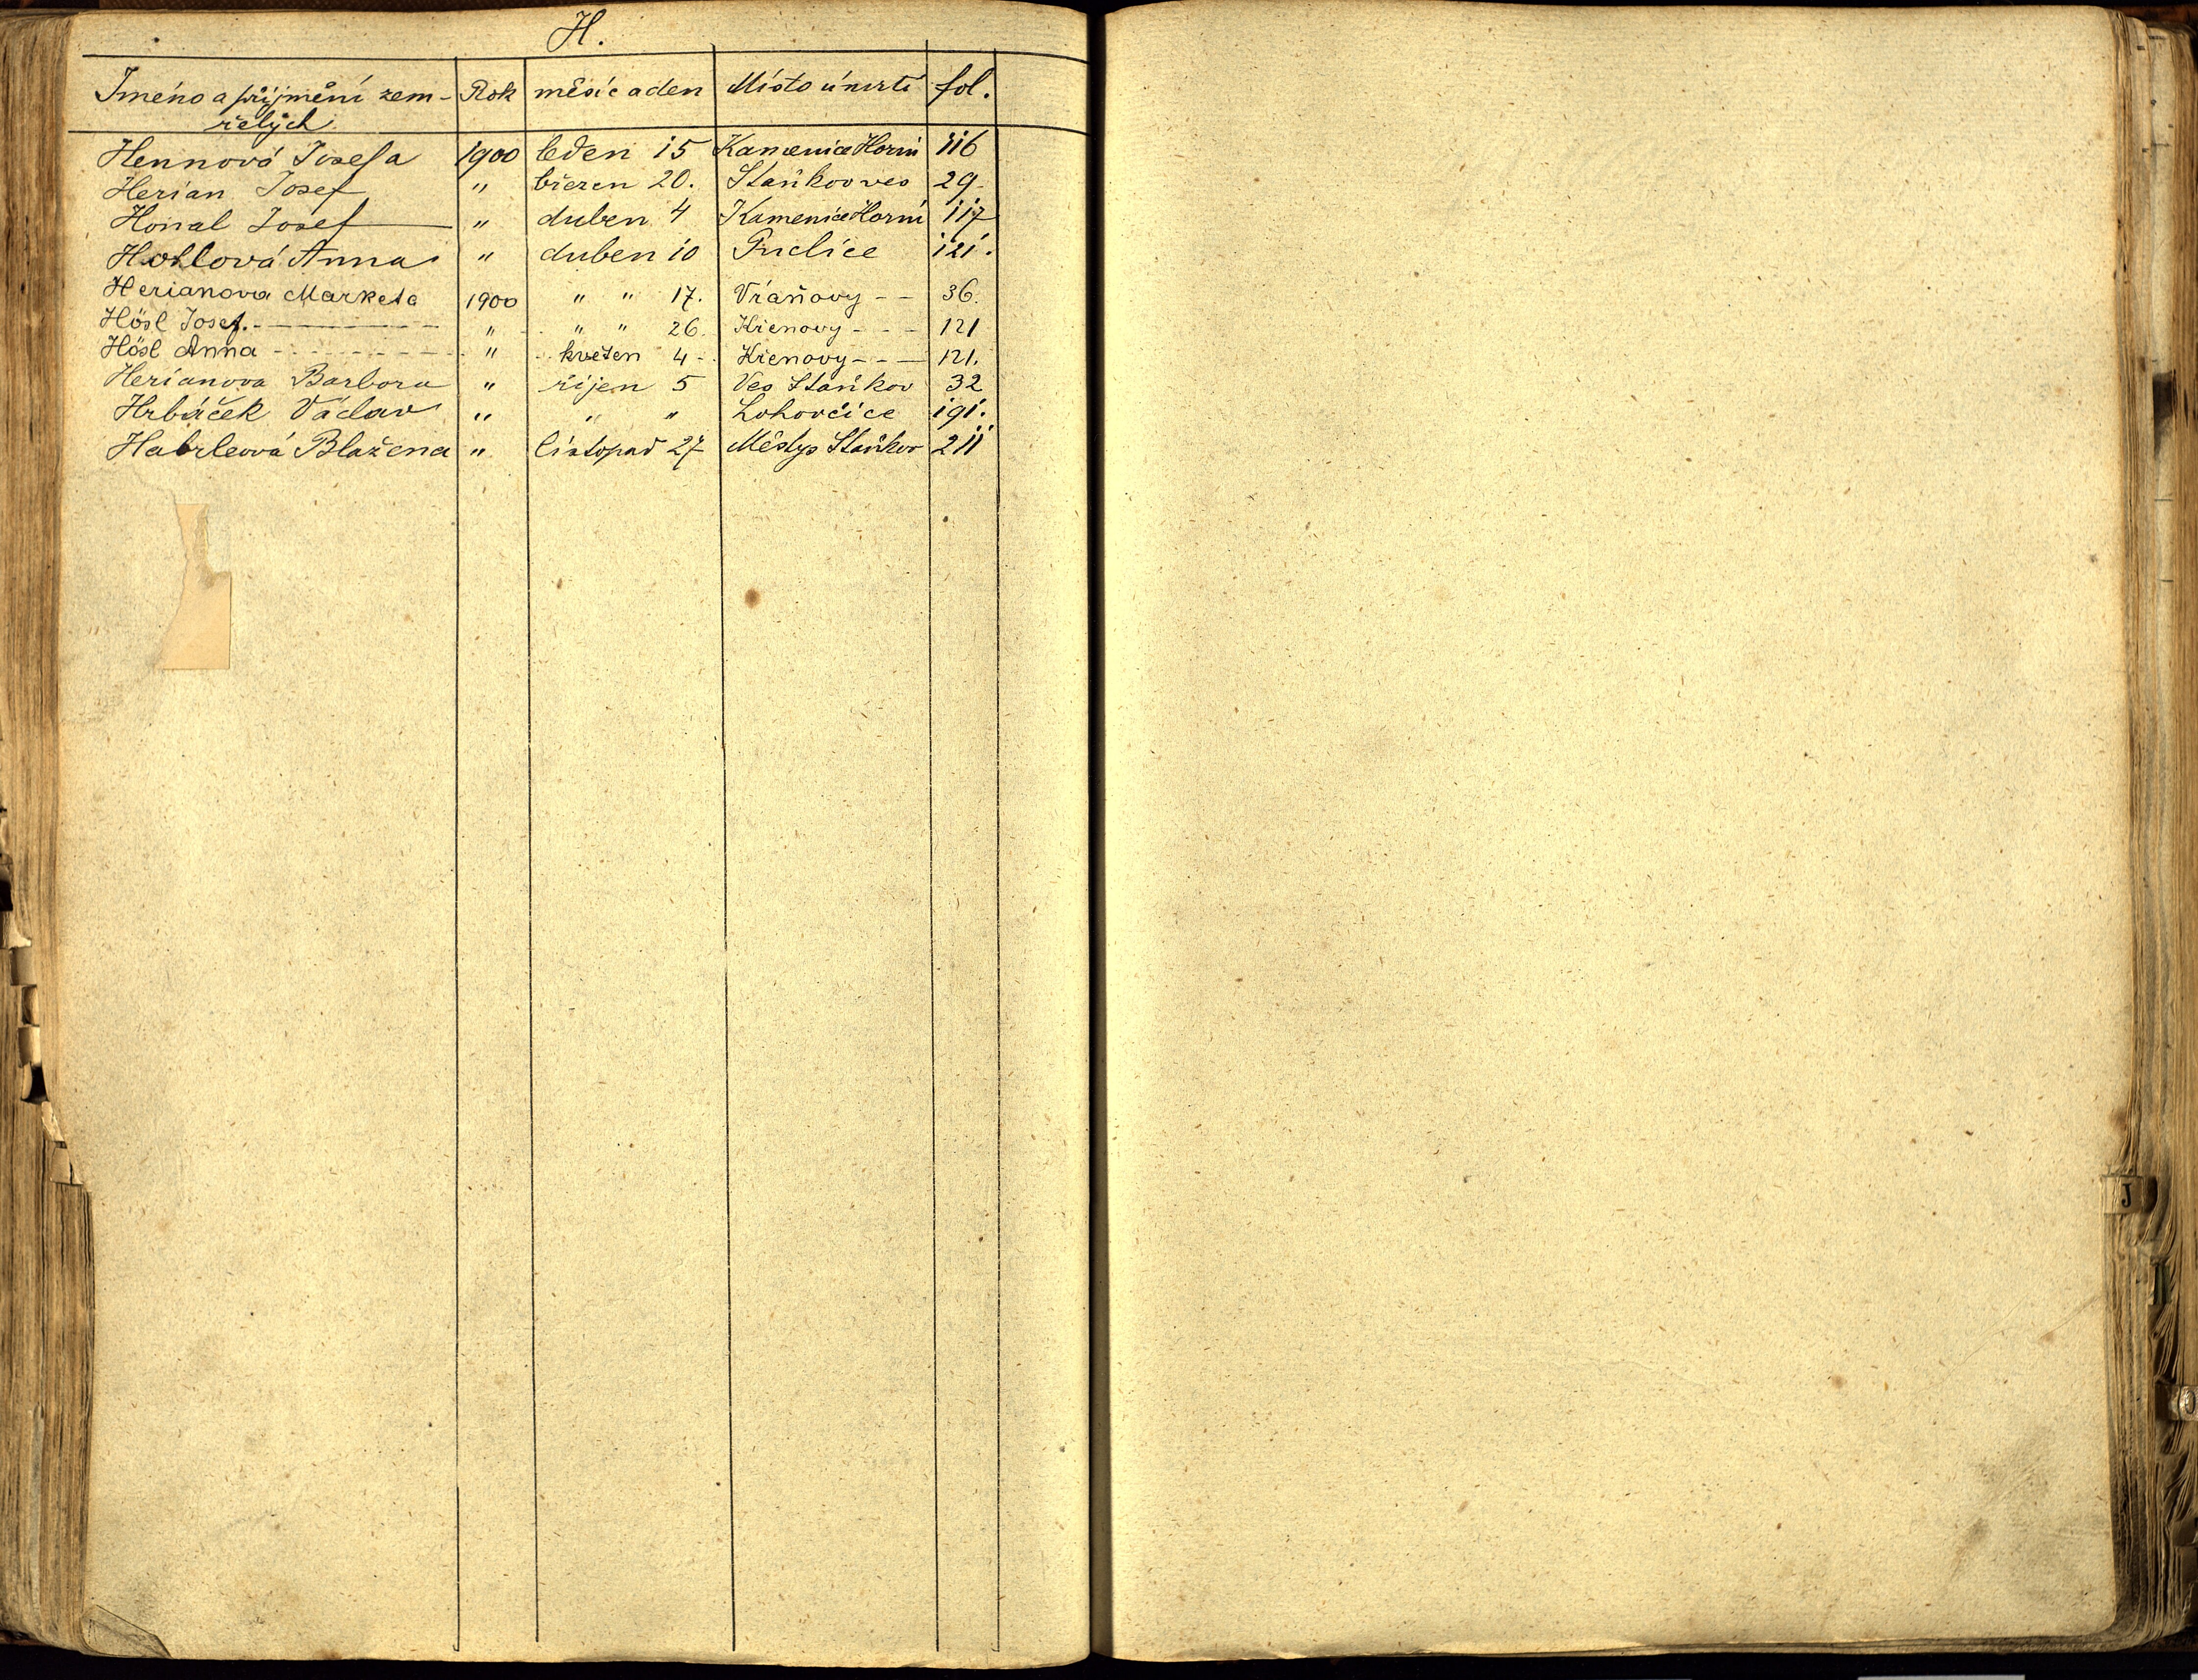 H.
Jméno a příjmění zem- Rok měsíc a den Místo úmrtí fol.
řelých
Hennová Josefa 1900 leden 15 Kamenice Horní 116
Herian Josef " březen 20. Staňkov ves 29.
Honal Josef " duben 4 Kamenice Horní 117
Hollová Anna " duben 10 Puclice 121.
Herianova Marketa 1900 " " 17. Vřaňovy - - 36.
Hösl Josef. " " " 26. Křenovy - - - 121
Hösl Anna " květen 4 - Křenovy - - - 121.
Herianova Barbora " říjen 5 Ves Staňkov 32
Hrbáček Václav " " " Lohovčice 191.
Habrleová Blažena " listopad 27 Městys Staňkov 211
J